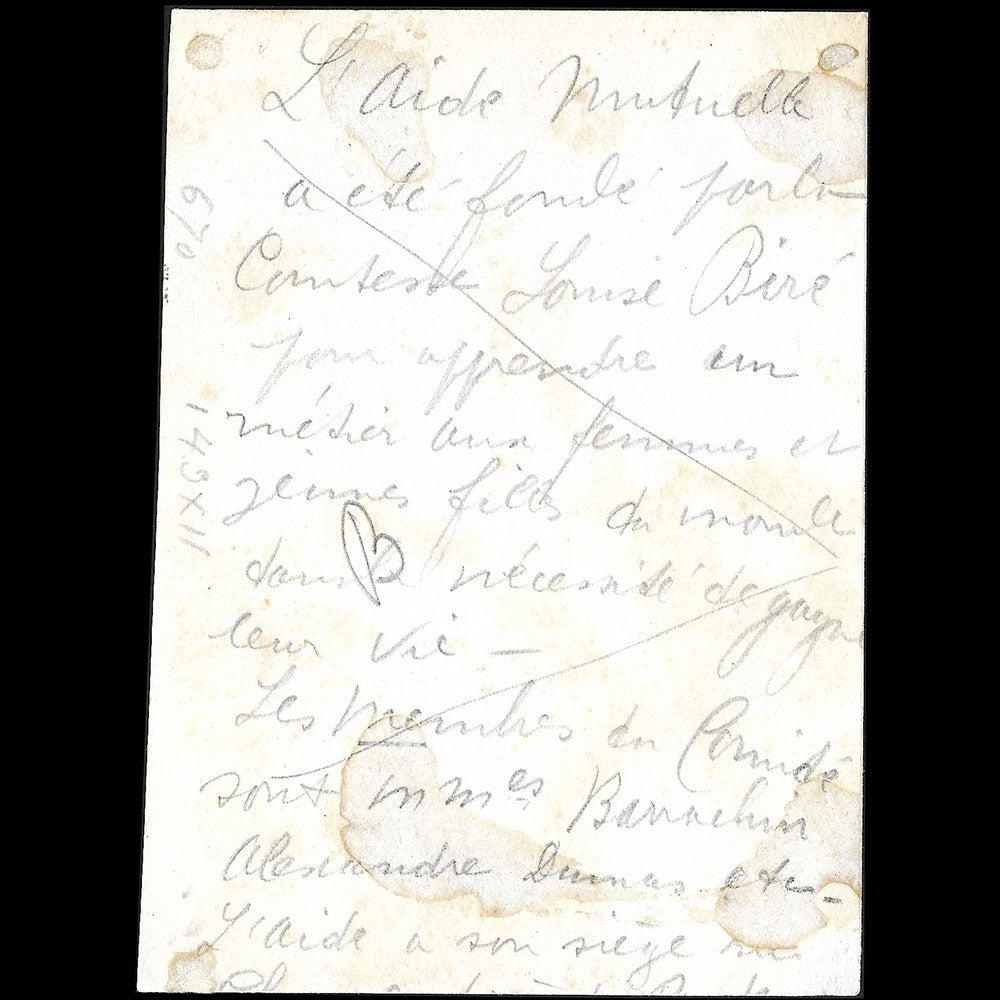 L'Aide Mutuelle
a été fondé par la
Comtesse Louise Biré
pour apprendre un
métier aux femmes et
jeunes filles du monde
dans la nécessité de gagner
leur vie —
Les Membres du Comité
sont Mmes Barrachin
Alexandre Dumas etc -
L'Aide a son siège
670